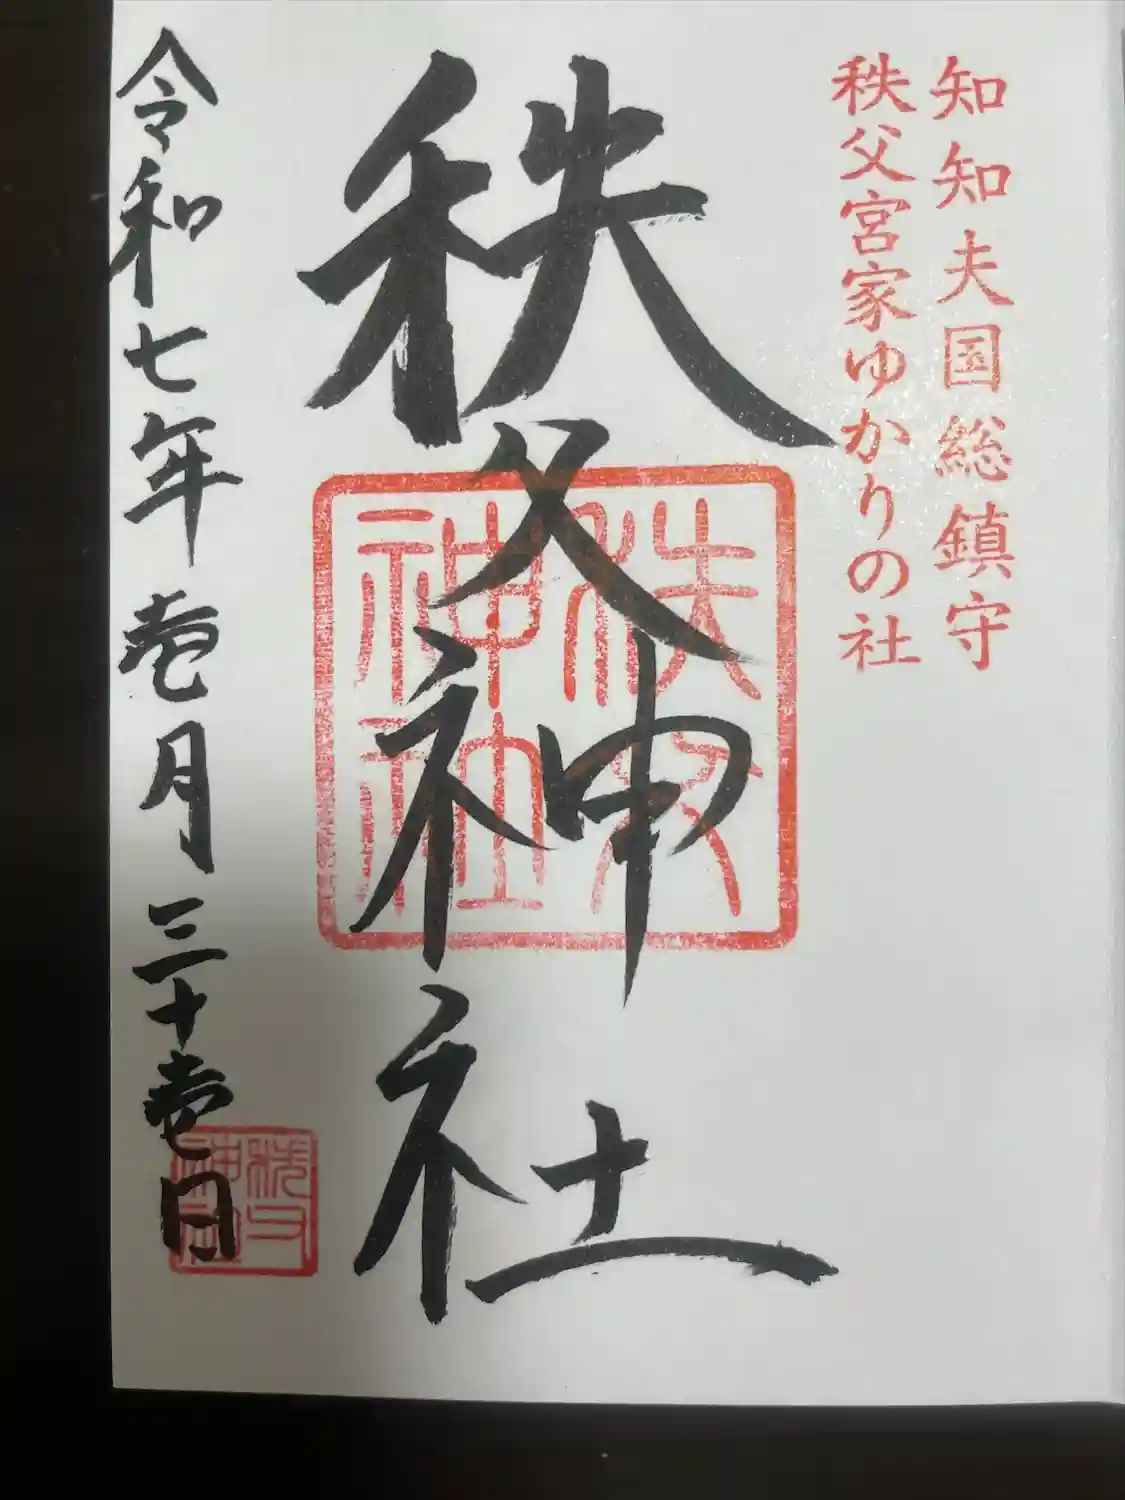 知知夫国総鎮守
秩父宮家ゆかりの社
秩父神社
秩父
神社
令和七年壱月三十壱日
秩父
神社